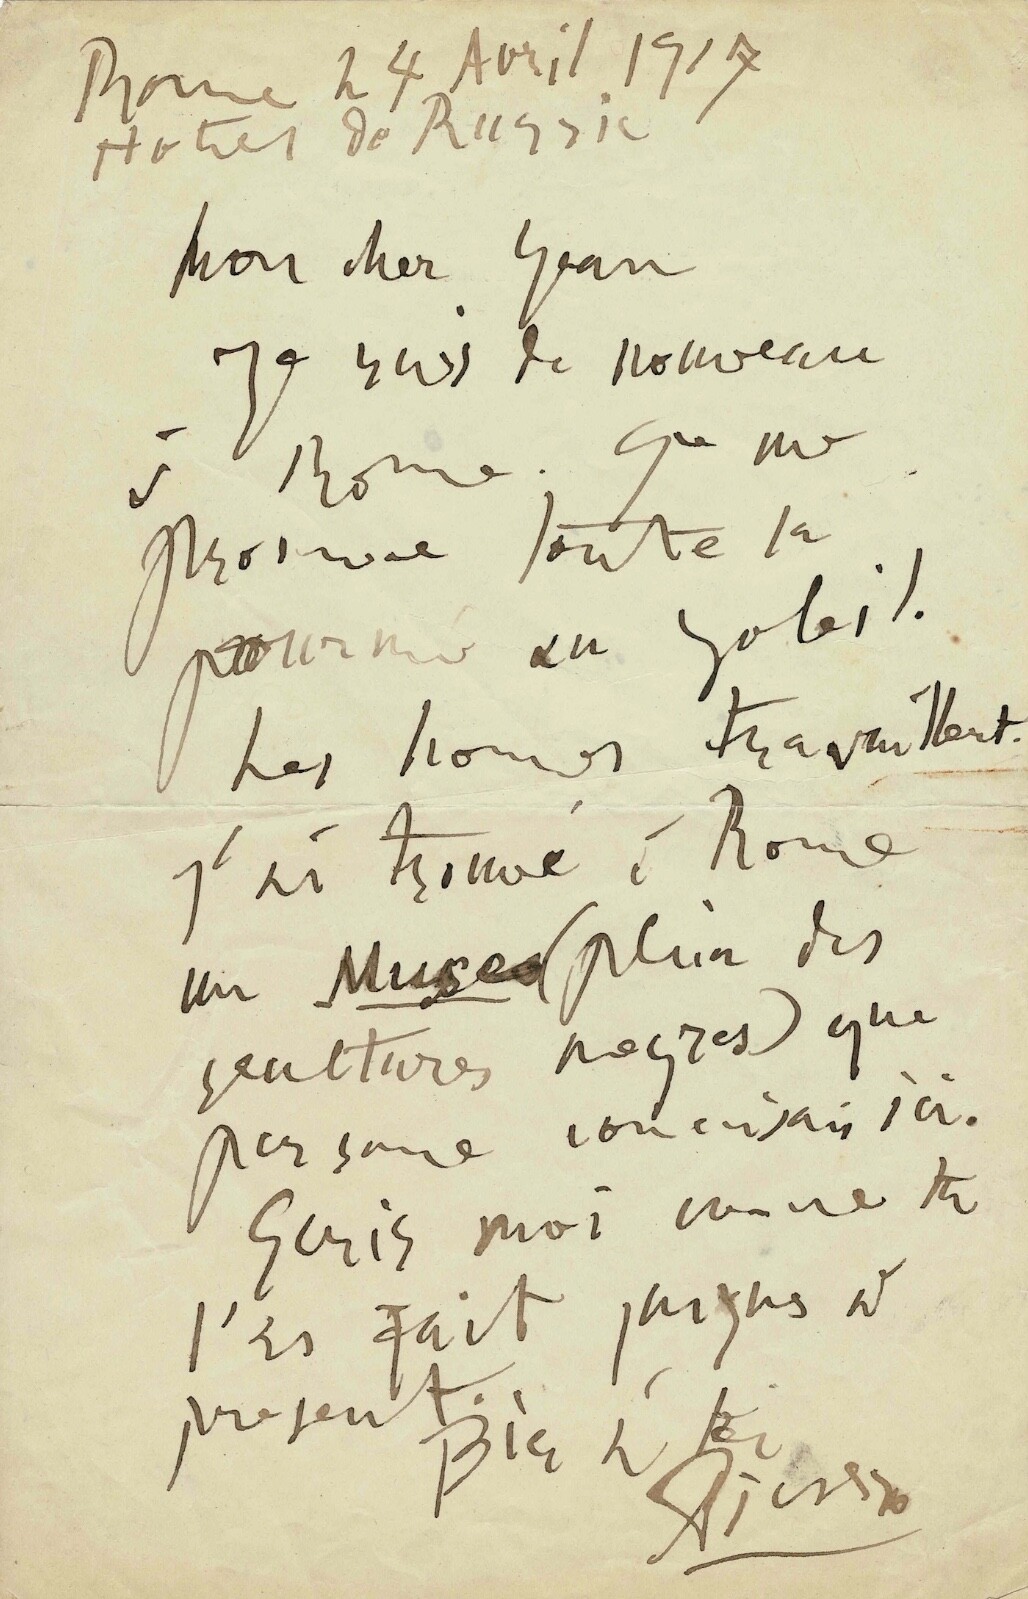 Rome 24 Avril 1917
Hotel de Russie
Mon cher Jean
Je suis de nouveau
à Rome. Ge me
promne toute la
journé au soleil.
Les homes travaillent.
J'ai trouvé à Rome
un Musee (plein des
scultures negres) que
persone conaisais ici.
Ecris moi come tu
l'as fait jusque à
present.
Bien à toi
Picasso